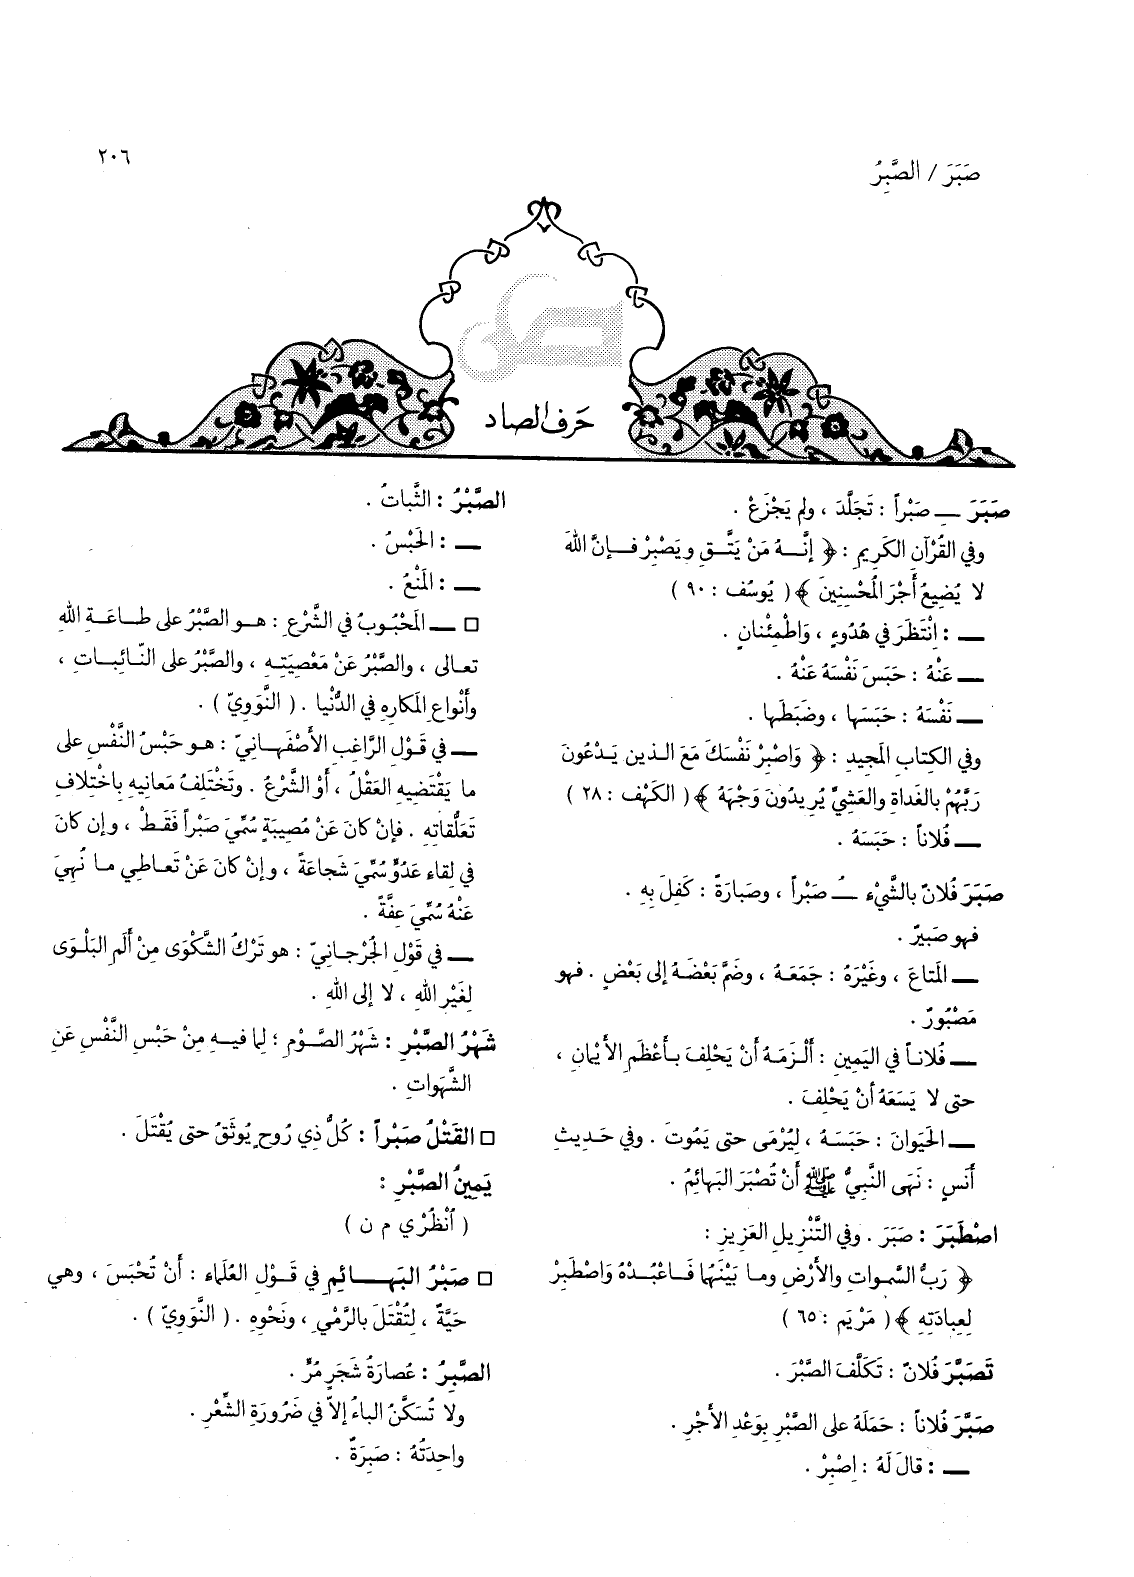 صَبَرَ / الصَّبِرُ
٢٠٦
حَرف الصاد
صَبَرَ ــِـ صَبْراً : تَجَلَّدَ ، ولم يَجْزَعْ .
وفي القُرْآن الكَرِيم : ﴿ إنَّـهُ مَنْ يَتَّـقِ ويَصْبِرْ فـإنَّ اللهَ
لا يُضِيعُ أَجْرَ المُحْسِنِينَ ﴾ ( يُوسُف : ٩٠ )
ــ : اِنْتَظَرَ في هُدُوءٍ ، وَاطْمِئْنانٍ .
ــ عَنْهُ : حَبَسَ نَفْسَهُ عَنْهُ .
ــ نَفْسَهُ : حَبَسَها ، وضَبَطَها .
وفي الكِتاب المَجيد : ﴿ وَاصْبِرْ نَفْسَكَ مَعَ الذين يَـدْعُونَ
رَبَّهُمْ بالغَداةِ والعَشِيِّ يُرِيدُونَ وَجْهَهُ ﴾ ( الكَهْف : ٢٨ )
ــ فُلاناً : حَبَسَهُ .
صَبَرَ فُلانٌ بالشَّيْءِ ــُـ صَبْراً ، وصَبارَةً : كَفِلَ بِهِ .
فهو صَبيرٌ .
ــ المَتاعَ ، وغَيْرَهُ : جَمَعَهُ ، وضَمَّ بَعْضَهُ إلى بَعْضٍ . فهو
مَصْبُورٌ .
ــ فُلانـاً في اليَمِين : أَلْـزَمَـهُ أنْ يَحْلِفَ بـأَعْظَمِ الأيْمانِ ،
حتى لا يَسَعَهُ أنْ يَحْلِفَ .
ــ الحَيَوانَ : حَبَسَـهُ ، لِيُرْمَى حتى يَمُوتَ . وفي حَـديثِ
أَنَسٍ : نَهَى النَّبِيُّ ﷺ أَنْ تُصْبَرَ البَهائِمُ .
اصْطَبَرَ : صَبَرَ . وفي التَّنْزِيلِ العَزِيزِ :
﴿ رَبُّ السَّمواتِ والأرْضِ وما بَيْنَهُما فَـاعْبُـدْهُ وَاصْطَبِرْ
لِعِبادَتِهِ ﴾ ( مَرْيَم : ٦٥ )
تَصَبَّرَ فُلانٌ : تَكَلَّفَ الصَّبْرَ .
صَبَّرَ فُلاناً : حَمَلَهُ على الصَّبْرِ بِوَعْدِ الأَجْرِ .
ــ : قالَ لَهُ : اِصْبِرْ .
الصَّبْرُ : الثَّباتُ .
ــ : الحَبْسُ .
ــ : المَنْعُ .
□ ــ المَحْبُـوبُ في الشَّرْعِ : هـو الصَّبْرُ على طـاعَـةِ اللهِ
تعـالى ، والصَّبْرُ عَنْ مَعْصِيَتِـهِ ، والصَّبْرُ على النّـائِبـاتِ ،
وأَنْواعِ المَكارِهِ في الدُّنْيا . ( النَّوَوِيّ ) .
ــ في قَوْلِ الرَّاغِبِ الأَصْفَهـانِيّ : هـو حَبْسُ النَّفْسِ على
ما يَقْتَضيهِ العَقْلُ ، أوْ الشَّرْعُ . وتَخْتَلِفُ مَعانِيهِ بِاخْتِلافِ
تَعَلُّقاتِهِ . فإنْ كانَ عَنْ مُصِيبَةٍ سُمِّيَ صَبْراً فَقَـطْ ، وإن كانَ
في لِقاءِ عَدُوٍّ سُمِّيَ شَجاعَةً ، وإنْ كانَ عَنْ تَعـاطِي مـا نُهِيَ
عَنْهُ سُمِّيَ عِفَّةً .
ــ في قَوْلِ الجُرْجـانِيّ : هو تَرْكُ الشَّكْوَى مِنْ أَلَمِ البَلْـوَى
لِغَيْرِ اللهِ ، لا إلى اللهِ .
شَهْرُ الصَّبْرِ : شَهْرُ الصَّـوْمِ ؛ لِما فيـهِ مِنْ حَبْسِ النَّفْسِ عَنِ
الشَّهَواتِ .
□ القَتْلُ صَبْراً : كُلُّ ذي رُوحٍ يُوثَقُ حتى يُقْتَلَ .
يَمِينُ الصَّبْرِ :
( اُنْظُرْي م ن )
□ صَبْرُ البَهـائِمِ في قَـوْلِ العُلَماء : أَنْ تُحْبَسَ ، وهي
حَيَّةٌ ، لِتُقْتَلَ بالرَّمْيِ ، ونَحْوِهِ . ( النَّوَوِيّ ) .
الصَّبِرُ : عُصارَةُ شَجَرٍ مُرٍّ .
ولا تُسَكَّنُ الباءُ إلاّ في ضَرُورَةِ الشِّعْرِ .
واحِدَتُهُ : صَبِرَةٌ .